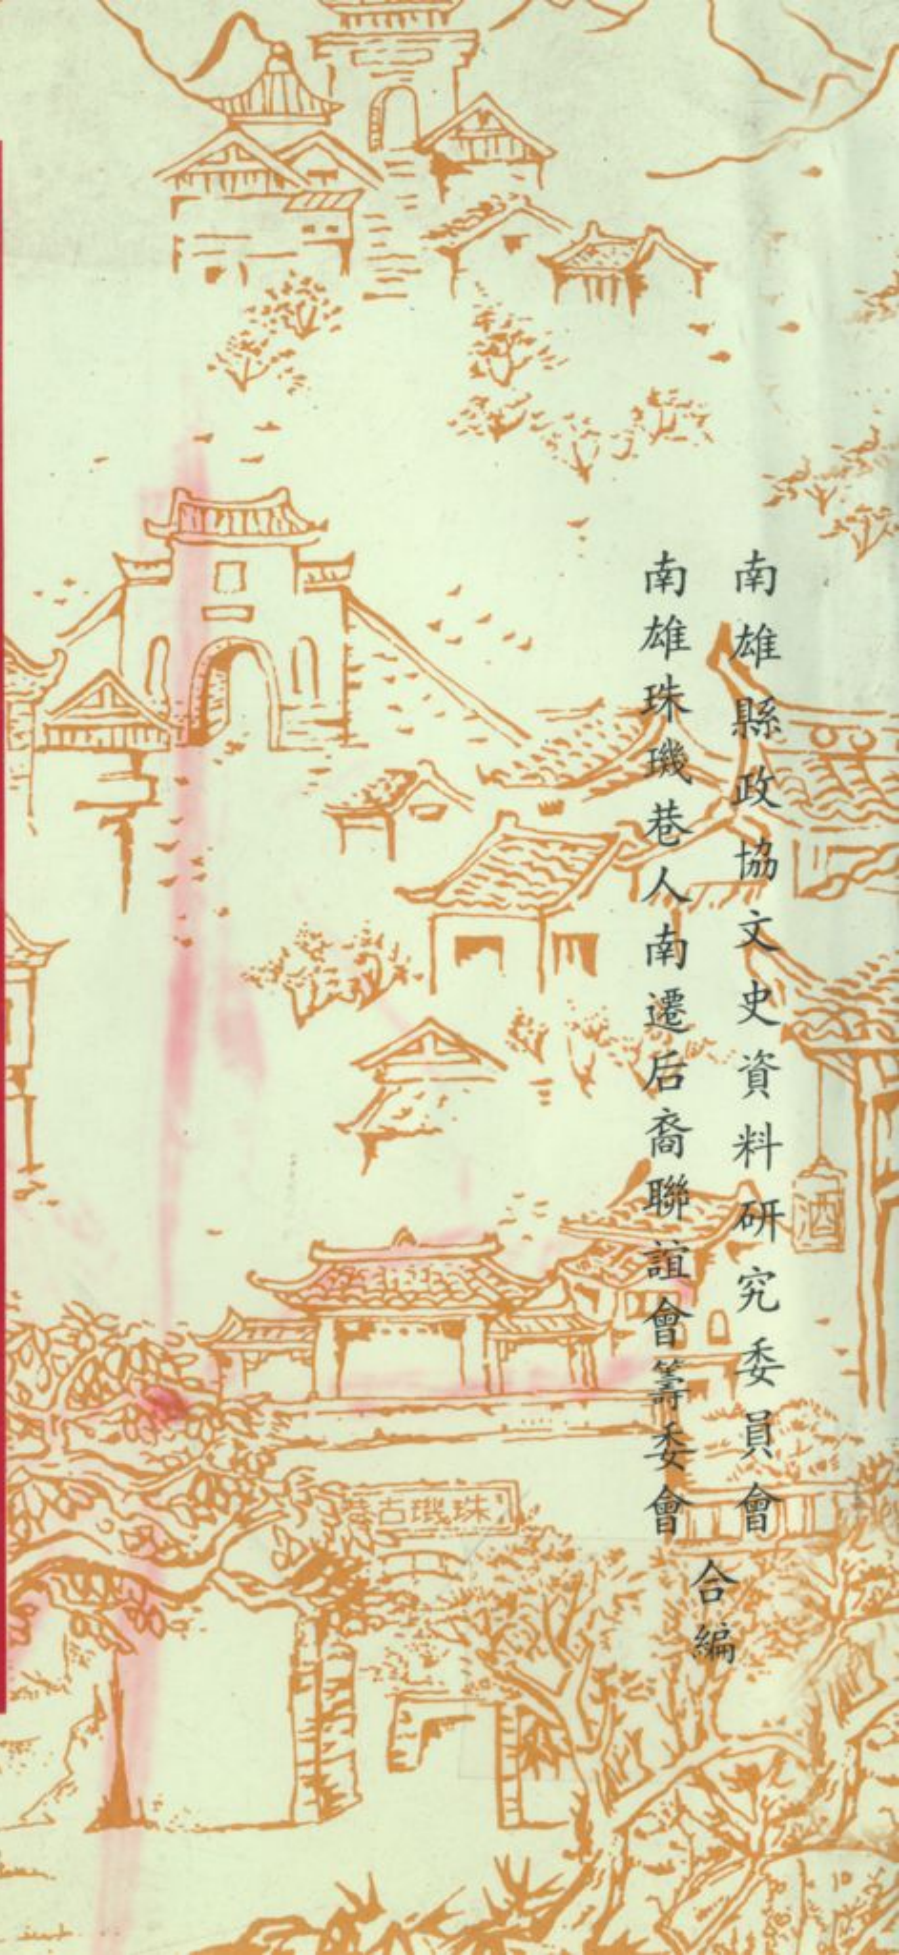 南雄縣政協文史資料研究委員會
南雄珠璣巷人南遷后裔聯誼會籌委會
合編
酒
珠璣古巷